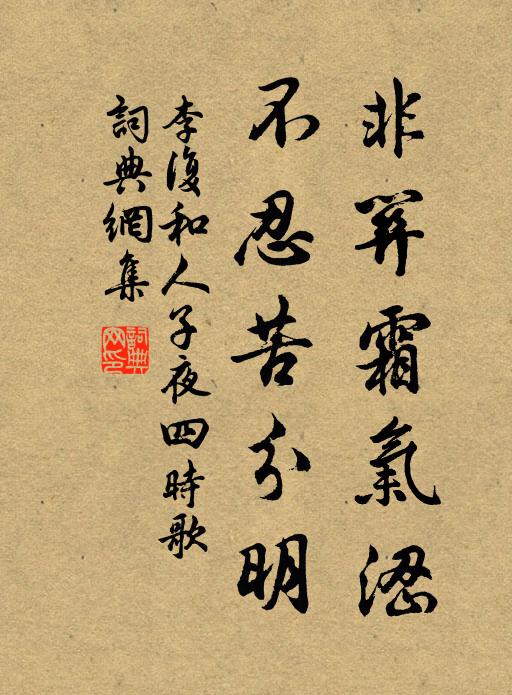 非關霜氣澀
不忍苦分明
李復和人子夜四時歌
詞典網集
詞典網印